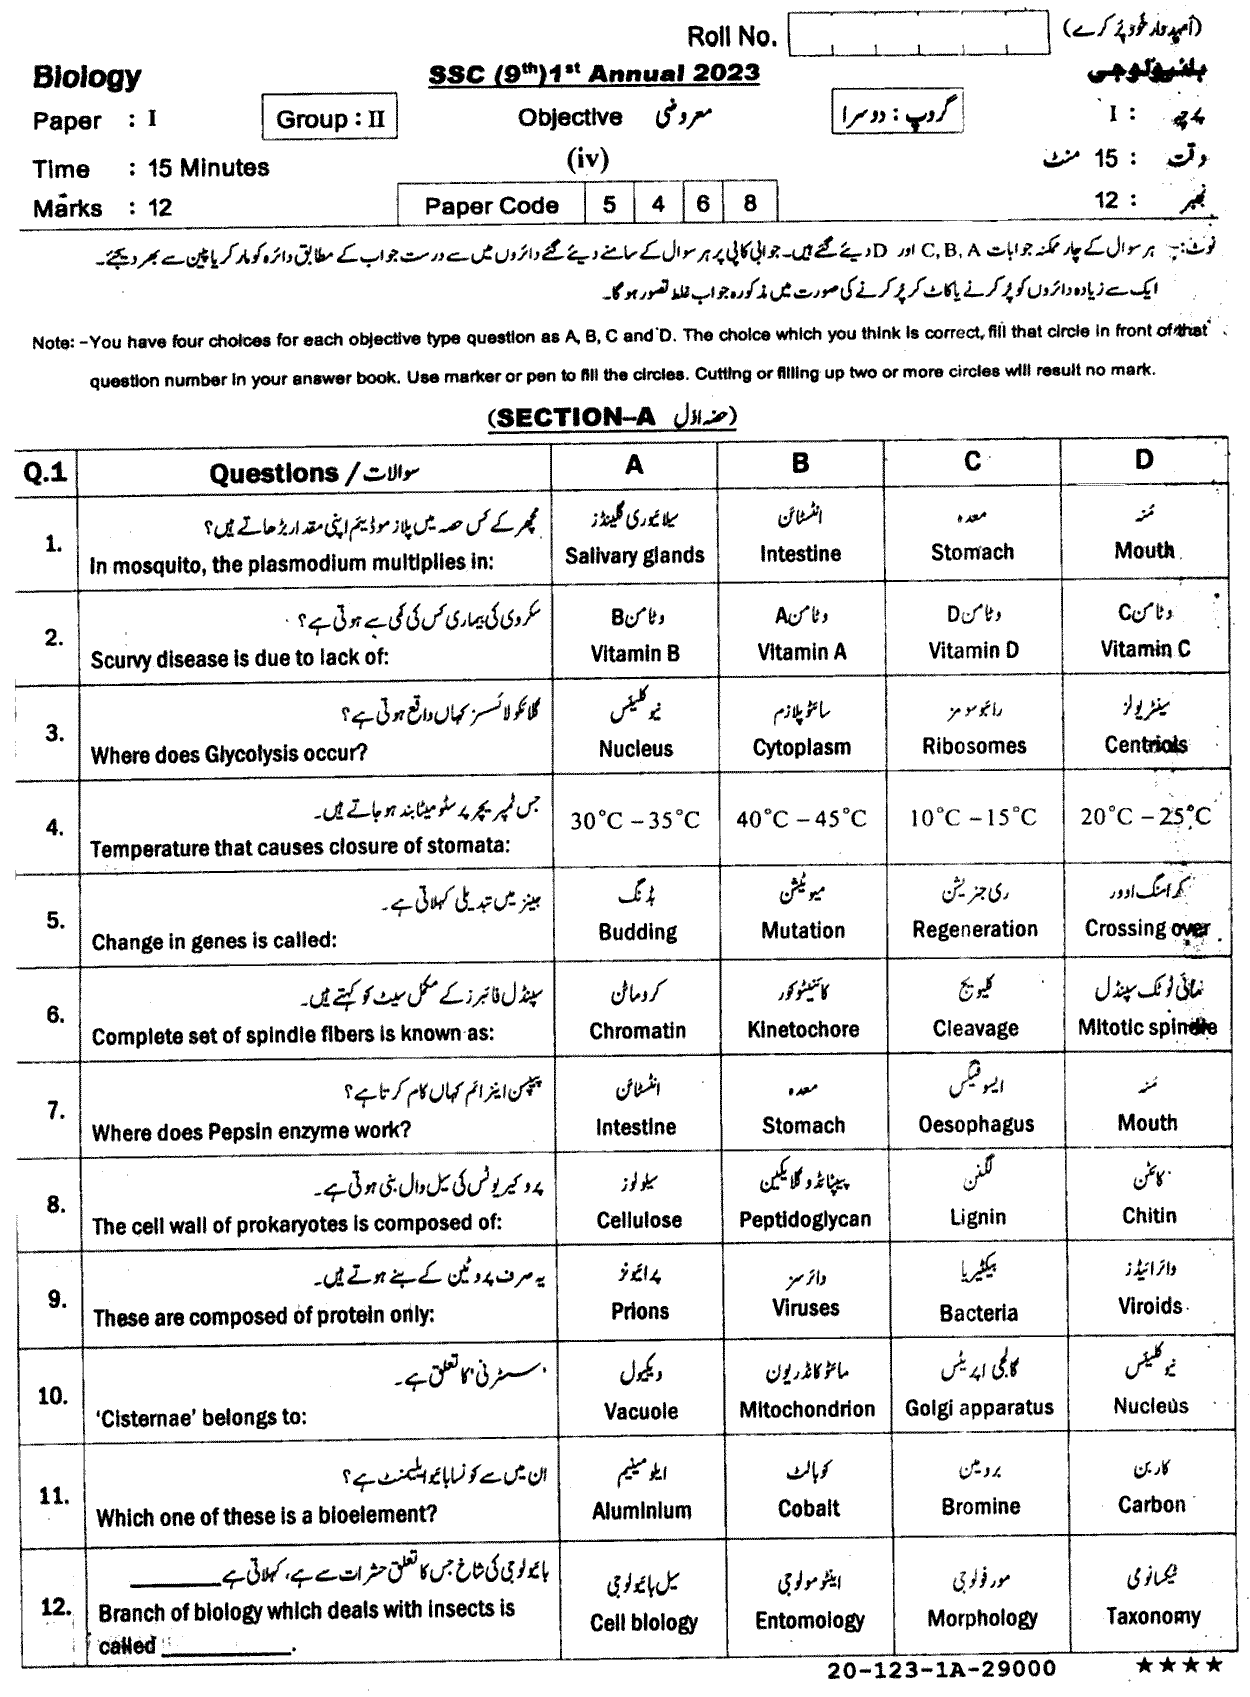 Roll No. (امیدوار خود پُر کرے)
Biology SSC (9th)1st Annual 2023 بائیولوجی
Paper : I Group : II Objective معروضی گروپ : دوسرا پرچہ : I
Time : 15 Minutes (iv) وقت : 15 منٹ
Marks : 12 Paper Code 5 4 6 8 نمبر : 12
نوٹ:- ہر سوال کے چار ممکنہ جوابات C, B, A اور D دیئے گئے ہیں۔ جوابی کاپی پر ہر سوال کے سامنے دیئے گئے دائروں میں سے درست جواب کے مطابق دائرہ کو مارکر یا پین سے بھر دیجئے۔
ایک سے زیادہ دائروں کو پُر کرنے یا کاٹ کر پُر کرنے کی صورت میں مذکورہ جواب غلط تصور ہو گا۔
Note: -You have four choices for each objective type question as A, B, C and D. The choice which you think is correct, fill that circle in front of that
question number in your answer book. Use marker or pen to fill the circles. Cutting or filling up two or more circles will result no mark.
(SECTION-A حصہ اوّل)
Q.1 Questions / سوالات A B C D
1. مچھر کے کس حصہ میں پلازموڈیم اپنی مقدار بڑھاتے ہیں؟ سیلائیوری گلینڈز انٹسٹائن معدہ مُنہ
In mosquito, the plasmodium multiplies in: Salivary glands Intestine Stomach Mouth
2. سکروی کی بیماری کس کی کمی سے ہوتی ہے؟ وٹامن B وٹامن A وٹامن D وٹامن C
Scurvy disease is due to lack of: Vitamin B Vitamin A Vitamin D Vitamin C
3. گلائکولائسز کہاں واقع ہوتی ہے؟ نیوکلیئس سائٹوپلازم رائبوسومز سینٹریولز
Where does Glycolysis occur? Nucleus Cytoplasm Ribosomes Centriols
4. جس ٹمپریچر پر سٹومیٹا بند ہو جاتے ہیں۔ 30°C –35°C 40°C –45°C 10°C –15°C 20°C –25°C
Temperature that causes closure of stomata:
5. جینز میں تبدیلی کہلاتی ہے۔ بڈنگ میوٹیشن ری جنریشن کراسنگ اوور
Change in genes is called: Budding Mutation Regeneration Crossing over
6. سپنڈل فائبرز کے مکمل سیٹ کو کہتے ہیں۔ کروماٹن کائنیٹوکور کلیویج مائی ٹوٹک سپنڈل
Complete set of spindle fibers is known as: Chromatin Kinetochore Cleavage Mitotic spindle
7. پیپسن اینزائم کہاں کام کرتا ہے؟ انٹسٹائن معدہ ایسوفیگس مُنہ
Where does Pepsin enzyme work? Intestine Stomach Oesophagus Mouth
8. پروکیریوٹس کی سیل وال بنی ہوتی ہے۔ سیلولوز پیپٹائڈوگلائیکین لگنن کائٹن
The cell wall of prokaryotes is composed of: Cellulose Peptidoglycan Lignin Chitin
9. یہ صرف پروٹین کے بنے ہوتے ہیں۔ پرائیونز وائرسز بیکٹیریا وائرائیڈز
These are composed of protein only: Prions Viruses Bacteria Viroids
10. 'سسٹرنی' کا تعلق ہے۔ ویکیول مائٹوکانڈریون گالجی اپریٹس نیوکلیئس
'Cisternae' belongs to: Vacuole Mitochondrion Golgi apparatus Nucleus
11. ان میں سے کونسا بائیوایلیمنٹ ہے؟ ایلومینیم کوبالٹ برومین کاربن
Which one of these is a bioelement? Aluminium Cobalt Bromine Carbon
12. بائیولوجی کی شاخ جس کا تعلق حشرات سے ہے، کہلاتی ہے ________ سیل بائیولوجی اینٹومولوجی مورفولوجی ٹیکسانومی
Branch of biology which deals with insects is Cell biology Entomology Morphology Taxonomy
called ____________.
20-123-1A-29000 ★★★★